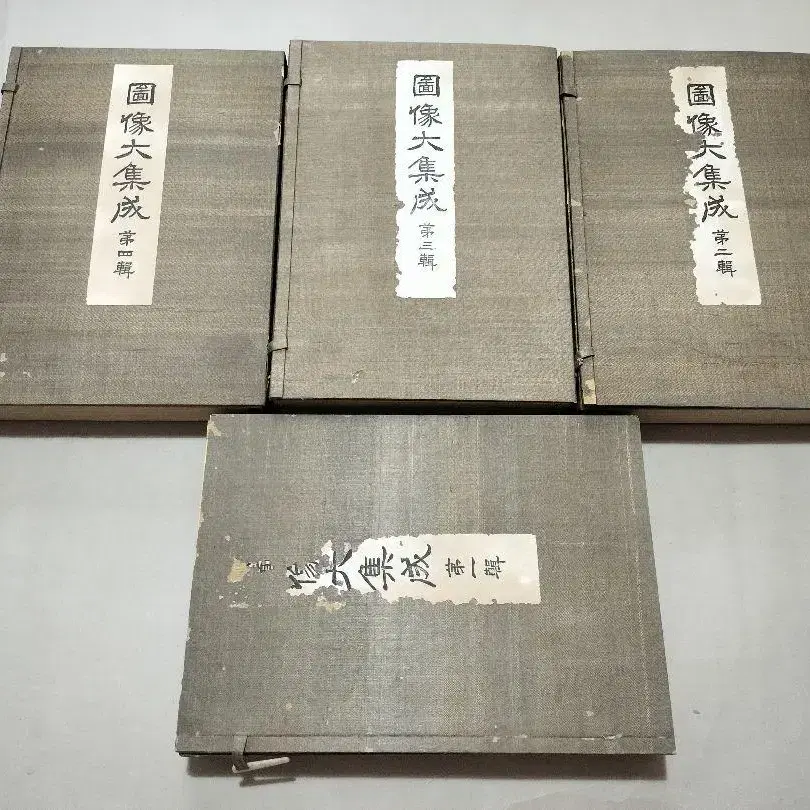 圖像大集成 第四輯
圖像大集成 第三輯
圖像大集成 第二輯
像大集成 第一輯